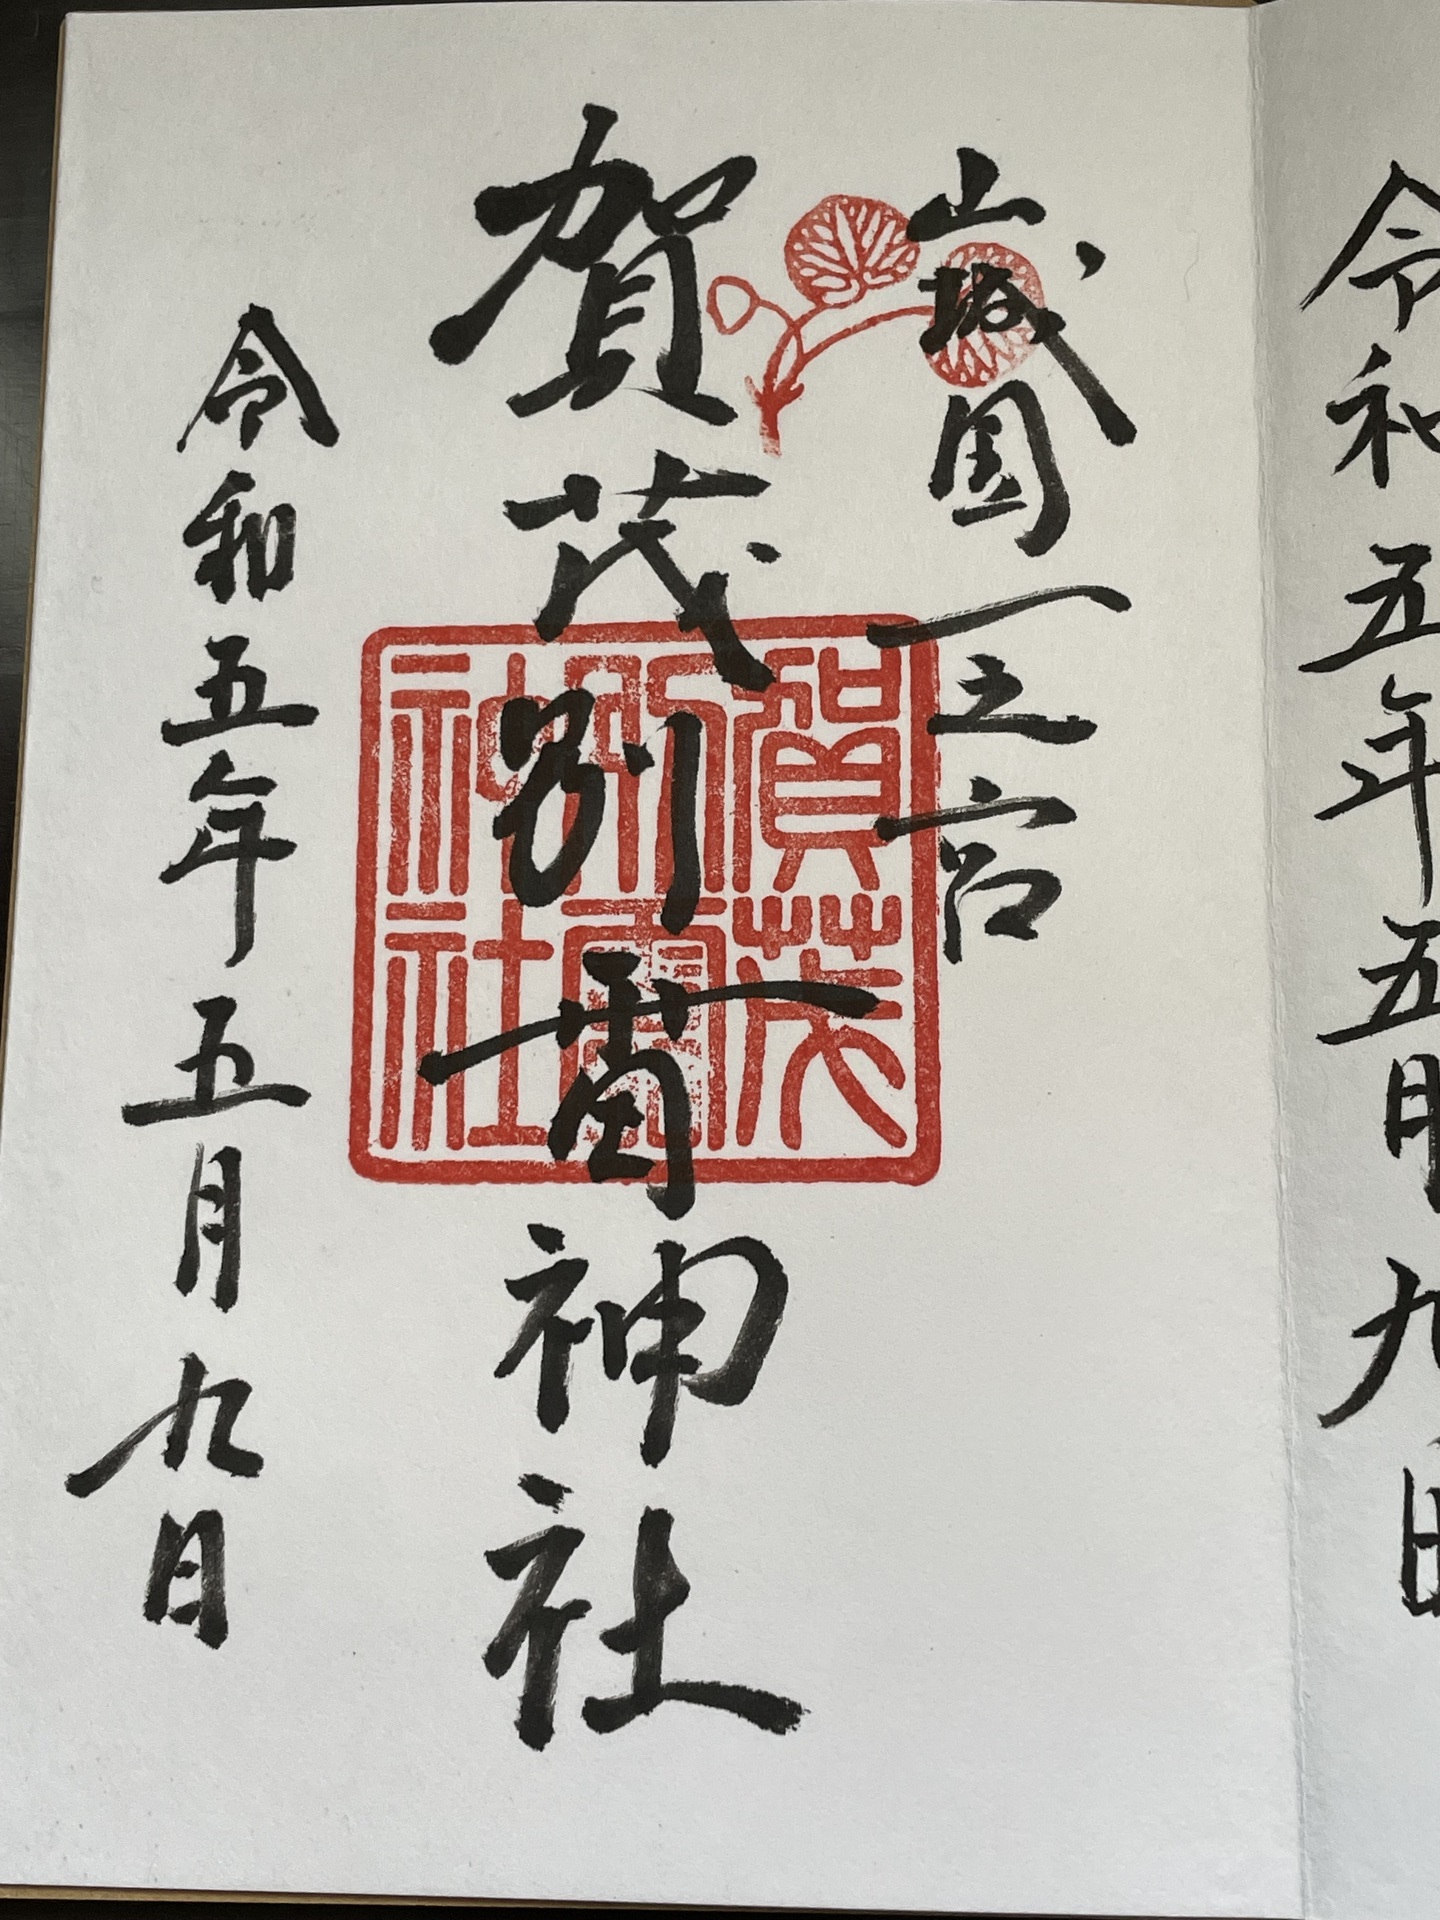 令和五年五月九日
山城国一之宮
賀茂別雷神社
賀茂
別雷
神社
令和五年五月九日